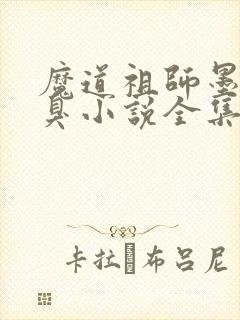 魔道祖師墨
臭小說全集
卡拉·布呂尼